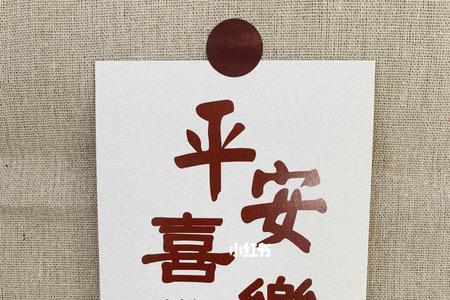 平安
喜樂
小红书